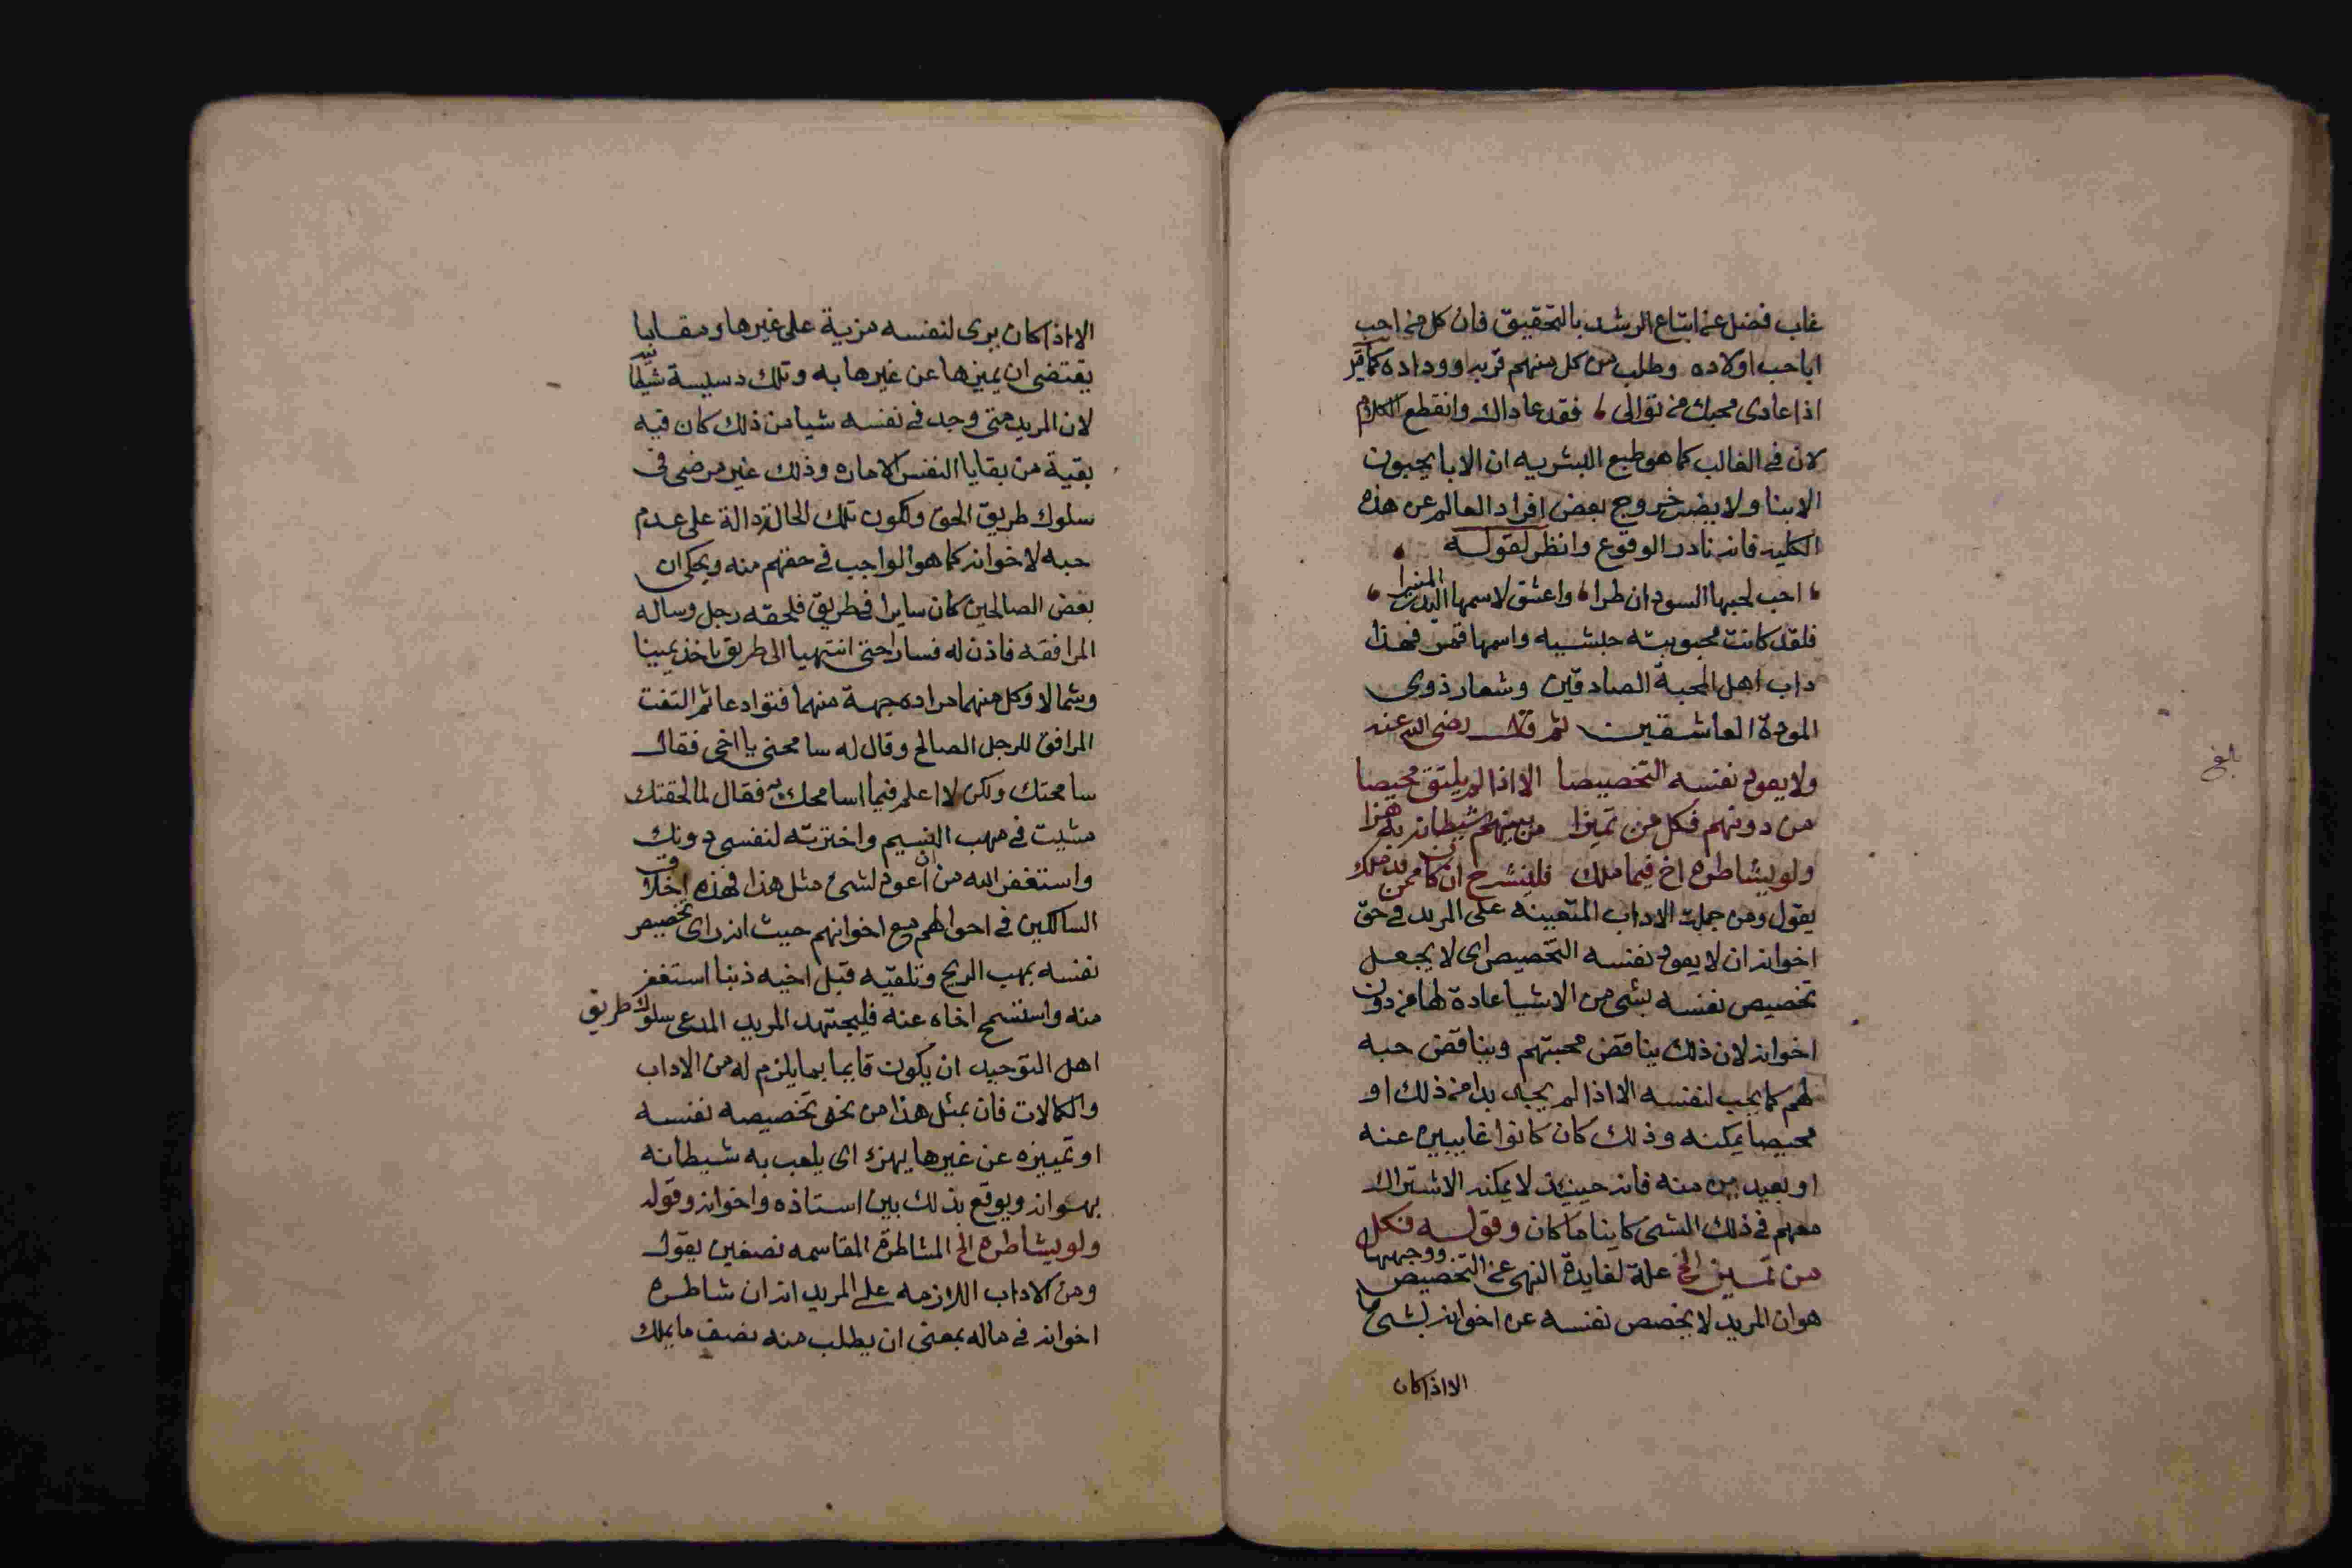 غاب فضل عن ابتاع الرشد بالتحقيق فان كل من احب
ابا حب اولاده وطلب من كل منهم قربه ووداده كما قيل
اذا عادى محبك من توالى فقد عاداك وانقطع الكلام
لان في الغالب كما هو طبع البشريه ان الابا يحبون
الابنا ولا يضر خروج بعض افراد العالم عن هذه
الكليه فانه نادر الوقوع وانظر لقوله
احب لحبها السودان طرا واعشق لاسمها البدر المنيرا
فلقد كانت محبوبته حبشيه واسمها قمر فهذا
داب اهل المحبة الصادقين وشعار ذوى
المودة العاشقين ثم قال رضى الله عنه
ولا يعود نفسه التخصيصا الا اذا لم يلتق محيصا
من دونهم فكل من تميزا من بينهم شيطانه به هزا
ولو يشاطره اخ فيما ملك فلينشرح ان كان ممن قد سلك
يقول ومن جملة الاداب المتعينه على المريد في حق
اخوانه ان لا يعود نفسه التخصيص اى لا يجعل
تخصيص نفسه بشى من الاشيا عادة لها من دون
اخوانه لان ذلك يناقض محبتهم ويناقض حبه
لهم كما يحب لنفسه الا اذا لم يجد بدا من ذلك او
محيصا يمكنه وذلك كان كانوا غايبين عنه
او بعيدين منه فانه حينئذ لا يمكنه الاشتراك
معهم في ذلك الشى كاينا ما كان وقوله فكل
من تميز الخ علة لفايدة النهى عن التخصيص ووجهها
هو ان المريد لا يخصص نفسه عن اخوانه بشى ما
الا اذا كان
بلغ
الا اذا كان يرى لنفسه مزية على غيرها ومقاما
يقتضى ان يميزها عن غيرها به وتلك دسيسة شيطانيه
لان المريد متى وجد في نفسه شيا من ذلك كان فيه
بقية من بقايا النفس الاماره وذلك غير مرضى في
سلوك طريق الحق ولكون تلك الحالة دالة على عدم
حبه لاخوانه كما هو الواجب في حقهم منه ويحكى ان
بعض الصالحين كان سايرا في طريق فلحقه رجل وساله
المرافقه فاذن له فسارا حتى انتهيا الى طريق ياخذ يمينا
وشمالا وكل منهما مراده جهة منهما فتوادعا ثم التفت
المرافق للرجل الصالح وقال له سامحنى يا اخى فقال
سامحتك ولكن لا اعلم فيما اسامحك به فقال لما لحقتك
مشيت في مهب النسيم واخترته لنفسى دونك
واستغفر الله من ان اعود لشى مثل هذا فهذه اخلاق
السالكين في احوالهم مع اخوانهم حيث انه راى تخصيص
نفسه بمهب الريح وتلقيه قبل اخيه ذنبا استغفر
منه واستسمح اخاه عنه فليجتهد المريد المدعى سلوك طريق
اهل التوحيد ان يكون قايما بما يلزم له من الاداب
والكمالات فان بمثل هذا من نحو تخصيصه نفسه
او تمييزه عن غيرها يهزا اى يلعب به شيطانه
بهوانه ويوقع بذلك بين استاذه واخوانه وقوله
ولو يشاطره الخ المشاطرة المقاسمه نصفين يقول
ومن الاداب اللازمه على المريد انه ان شاطره
اخوانه في ماله بمعنى ان يطلب منه نصف ما يملك